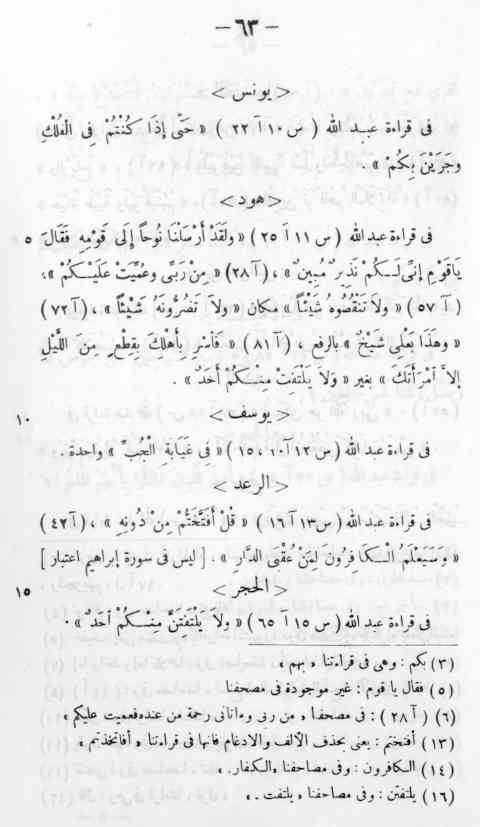 — ٦٣ —
< يونس >
فى قراءة عبد الله ( س ١٠ آ ٢٢ ) « حَتَّى إِذَا كُنْتُمْ فِى الْفُلْكِ
وَجَرَيْنَ بِكُمْ » .
< هود >
فى قراءة عبد الله ( س ١١ آ ٢٥ ) « ولَقَدْ أَرْسَلْنَا نُوحاً إِلَى قَوْمِهِ فَقَالَ ٥
يَاقَوْمِ إِنِّى لَكُمْ نَذِيرٌ مُبِينٌ » ، ( آ ٢٨ ) « مِنْ رَبِّى وعُمِّيَتْ عَلَيْكُمْ » ،
( آ ٥٧ ) « ولاَ تَنْقُصُوهُ شَيْئاً » مكان « ولاَ تَضُرُّونَهُ شَيْئاً » ، ( آ ٧٢ )
« وهَذَا بَعْلِى شَيْخٌ » بالرفع ، ( آ ٨١ ) « فَأَسْرِ بِأَهْلِكَ بِقِطْعٍ مِنَ اللَّيْلِ
إِلاَّ أمْرَأَتَكَ » بغير « وَلاَ يَلْتَفِتْ مِنْكُمْ أَحَدٌ » .
< يوسف > ١٠
فى قراءة عبد الله ( س ١٢ آ ١٠ ، ١٥ ) « فِى غَيَابَةِ الْجُبِّ » واحدة .
< الرعد >
فى قراءة عبد الله ( س ١٣ آ ١٦ ) « قُلْ أَفَتَّخَتُّمْ مِنْ دُونِهِ » ، ( آ ٤٢ )
« وَسَيَعْلَمُ الْكَافِرُونَ لِمَنْ عُقْبَى الدَّارِ » . [ ليس فى سورة إبراهيم اعتبار ]
< الحجر > ١٥
فى قراءة عبد الله ( س ١٥ آ ٦٥ ) « ولاَ يَلْتَفِتَنَّ مِنْكُمْ أَحَدٌ » .
(٣) بكم : وهى فى قراءتنا « بهم »
(٥) فقال ياقوم : غير موجودة فى مصحفنا
(٦) ( آ ٢٨ ) : فى مصحفنا « من ربى وءاتانى رحمة من عنده فعميت عليكم »
(١٣) أفتختم : يعنى بحذف الألف والادغام فانها فى قراءتنا « أفاتخذتم »
(١٤) الكافرون : وفى مصاحفنا « الكفار »
(١٦) يلتفتن : وفى مصاحفنا « يلتفت »